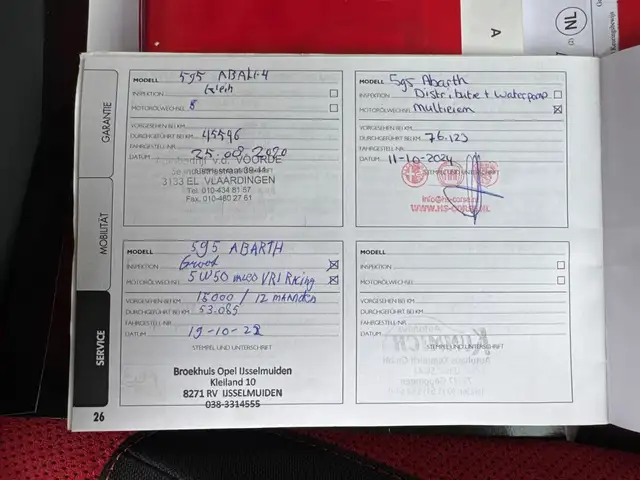 A
NL
GARANTIE
MOBILITÄT
SERVICE
26
MODELL 595 ABARTH
INSPEKTION
MOTORÖLWECHSEL
VORGESEHEN BEI KM
DURCHGEFÜHRT BEI KM 45546
FAHRGESTELL-NR.
DATUM 25.08.2020
v.d. VOORDE
3133 EL VLAARDINGEN
Tel. 010-434 81 57
Fax. 010-460 27 61
MODELL 595 Abarth
INSPEKTION Distributie + Waterpomp
MOTORÖLWECHSEL Multiriem
VORGESEHEN BEI KM
DURCHGEFÜHRT BEI KM 76.123
FAHRGESTELL-NR.
DATUM 11-10-2024
STEMPEL UND UNTERSCHRIFT
info@hs-corse.nl
WWW.HS-CORSE.NL
MODELL 595 ABARTH
INSPEKTION Groot
MOTORÖLWECHSEL 5W50 VR1 Racing
VORGESEHEN BEI KM 15000 / 12 maanden
DURCHGEFÜHRT BEI KM 53.085
FAHRGESTELL-NR.
DATUM 19-10-22
STEMPEL UND UNTERSCHRIFT
Broekhuis Opel IJsselmuiden
Kleiland 10
8271 RV IJSSELMUIDEN
038-3314555
MODELL
INSPEKTION
MOTORÖLWECHSEL
VORGESEHEN BEI KM
DURCHGEFÜHRT BEI KM
FAHRGESTELL-NR.
DATUM
STEMPEL UND UNTERSCHRIFT